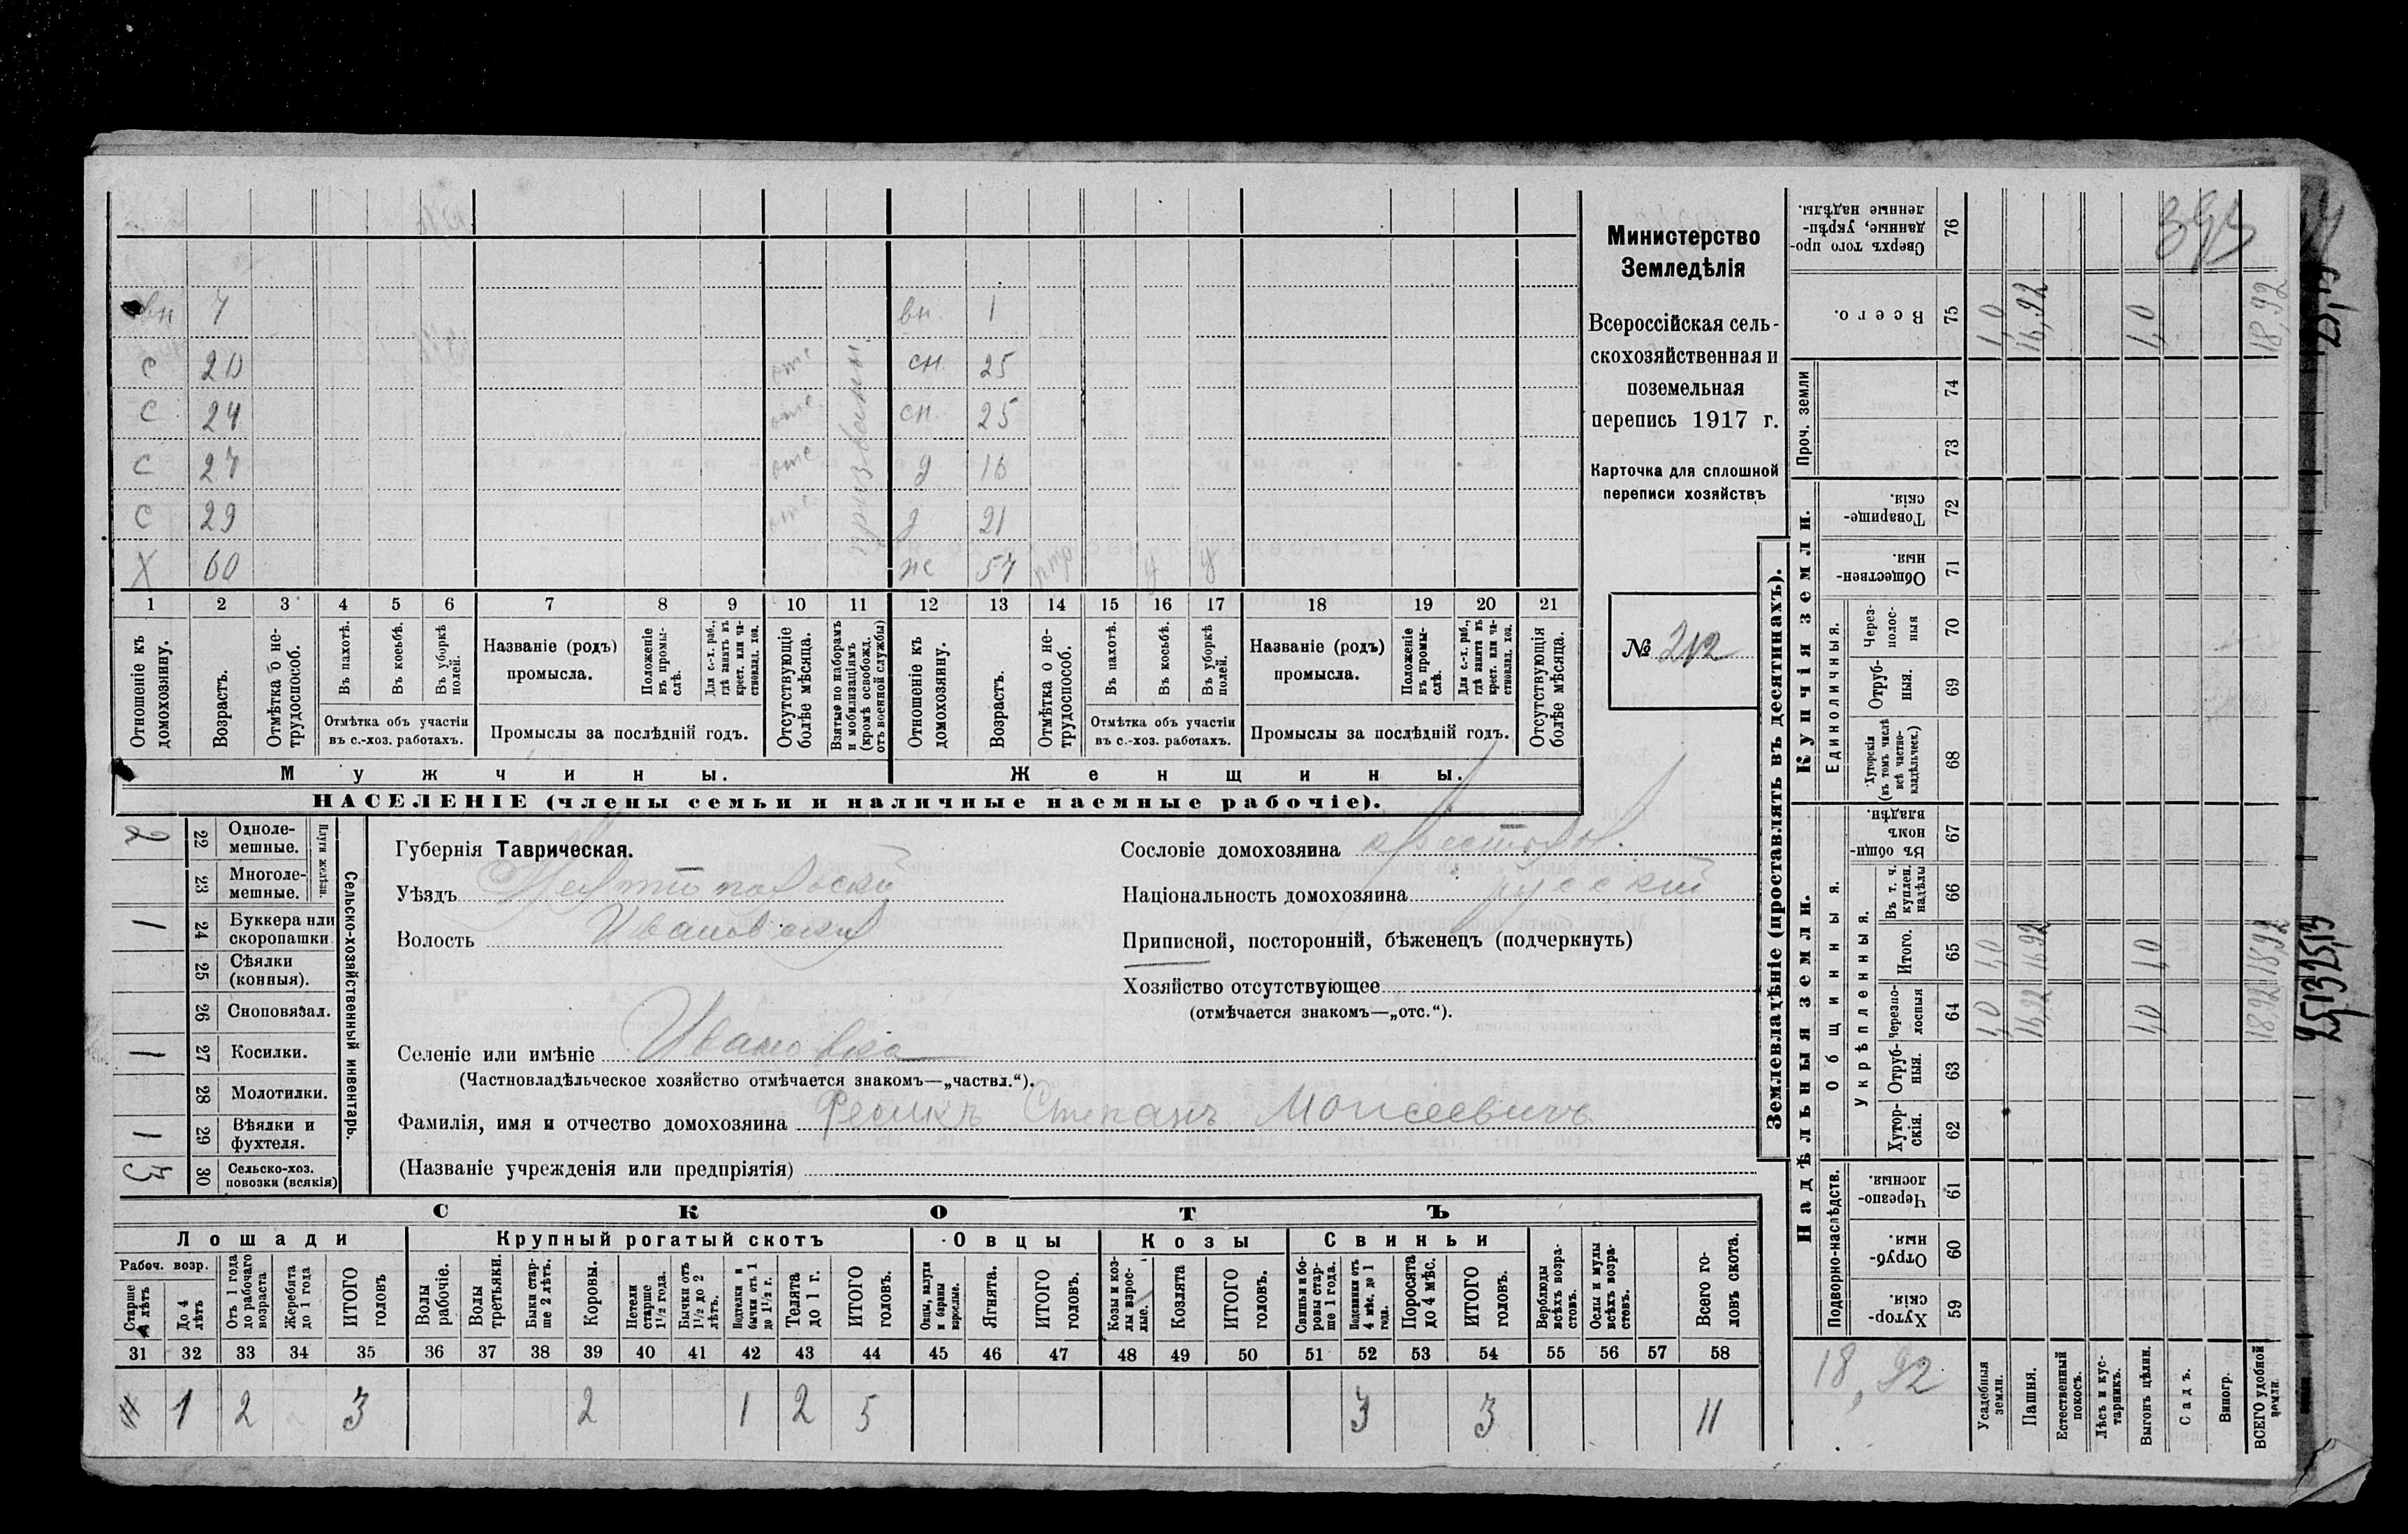 Министерство
Земледѣлія
Всероссійская сель-
скохозяйственная и
поземельная
перепись 1917 г.
Карточка для сплошной
переписи хозяйствъ
№ 212
вн 7 вн. 1
с 20 отс сн. 25
с 24 отс. сн. 25
с 27 отс д 16
с 29 отс. д 21
Х 60 ж 57 у у
призваны
1 2 3 4 5 6 7 8 9 10 11 12 13 14 15 16 17 18 19 20 21
Отношеніе къ домохозяину.
Возрастъ.
Отмѣтка о не-трудоспособ.
Въ пахотѣ.
Въ косьбѣ.
Въ уборкѣ полей.
Отмѣтка объ участіи въ с.-хоз. работахъ.
Названіе (родъ) промысла.
Положеніе въ промы-слѣ.
Для с.-х. раб., гдѣ занятъ въ крест. или ча-стновлад. хоз.
Промыслы за послѣдній годъ.
Отсутствующіе болѣе мѣсяца.
Взятые по наборамъ и мобилизаціямъ (кромѣ освобожд. отъ военной службы)
Отношеніе къ домохозяину.
Возрастъ.
Отмѣтка о не-трудоспособ.
Въ пахотѣ.
Въ косьбѣ.
Въ уборкѣ полей.
Отмѣтка объ участіи въ с.-хоз. работахъ.
Названіе (родъ) промысла.
Положеніе въ промы-слѣ.
Для с.-х. раб., гдѣ занята въ крест. или ча-стновлад. хоз.
Промыслы за послѣдній годъ.
Отсутствующія болѣе мѣсяца.
Мужчины. Женщины.
НАСЕЛЕНІЕ (члены семьи и наличные наемные рабочіе).
Сельско-хозяйственный инвентарь.
Плуги желѣзн.
2 22 Одноле-мешные.
23 Многоле-мешные.
1 24 Буккера или скоропашки
25 Сѣялки (конныя).
26 Сноповязал.
1 27 Косилки.
28 Молотилки.
1 29 Вѣялки и фухтеля.
3 30 Сельско-хоз. повозки (всякія)
Губернія Таврическая.
Уѣздъ Мелитопольскій
Волость Ивановская
Селеніе или имѣніе Ивановка
(Частновладѣльческое хозяйство отмѣчается знакомъ—„частвл.“).
Фамилія, имя и отчество домохозяина Фесикъ Степанъ Моисеевичъ
(Названіе учрежденія или предпріятія)
Сословіе домохозяина
Національность домохозяина русскій
Приписной, посторонній, бѣженецъ (подчеркнуть)
Хозяйство отсутствующее
(отмѣчается знакомъ—„отс.“).
СКОТЪ
Лошади Крупный рогатый скотъ Овцы Козы Свиньи
Рабоч. возр.
Старше 4 лѣтъ
До 4 лѣтъ
Отъ 1 года до рабочаго возраста
Жеребята до 1 года
ИТОГО головъ
Волы рабочіе.
Волы третьяки.
Быки стар-ше 2 лѣтъ.
Коровы.
Нетели старше 1½ года.
Бычки отъ 1½ до 2 лѣтъ.
Подтелки и бычки отъ 1 до 1½ г.
Телята до 1 г.
ИТОГО головъ.
Овцы, валухи и бараны взрослые.
Ягнята.
ИТОГО головъ.
Козы и коз-лы взрос-лые.
Козлята
ИТОГО головъ.
Свиньи и бо-ровы стар-ше 1 года.
Подсвинки отъ 4 мѣс. до 1 года.
Поросята до 4 мѣс.
ИТОГО головъ.
Верблюды всѣхъ возра-стовъ.
Ослы и мулы всѣхъ возра-стовъ.
Всего го-ловъ скота.
31 32 33 34 35 36 37 38 39 40 41 42 43 44 45 46 47 48 49 50 51 52 53 54 55 56 57 58
1 2 3 2 1 2 5 3 3 11
Землевладѣніе (проставлять въ десятинахъ).
Надѣльныя земли. Купчія земли.
Проч. земли
Подворно-наслѣдств.
Общинныя.
Укрѣпленныя.
Единоличныя.
Хутор-скія. 59
Отруб-ныя. 60
Черезпо-лосныя. 61
Хутор-скія. 62
Отруб-ныя. 63
Черезпо-лосныя 64
Итого. 65
Въ т. ч. куплен. надѣлы 66
Въ общи-номъ владѣн. 67
Хуторскія (въ томъ числѣ всѣ частно-владѣльческ.) 68
Отруб-ныя. 69
Через-полос-ныя 70
Обществен-ныя. 71
Товарище-скія. 72
73
74
Всего. 75
Сверхъ того про-данные, укрѣп-ленные надѣлы. 76
18,92
Усадебныя земли. 1,0 1,0 1,0
Пашня. 16,92 16,92 16,92
Естественный покосъ.
Лѣсъ и кус-тарникъ.
Выгонъ цѣлин. 1,0 1,0 1,0
Садъ.
Виногр.
ВСЕГО удобной земли. 18,92 18,92 18,92